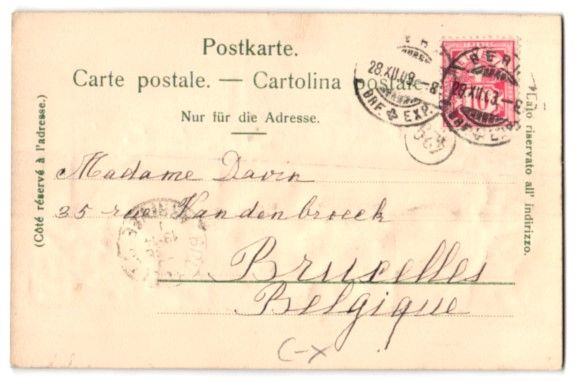 Postkarte.
Carte postale. — Cartolina postale.
Nur für die Adresse.
(Côté réservé à l'adresse.)
(Lato riservato all' indirizzo.
BERN
28.XII.03.-8
BRF. EXP.
Madame Davin
35 rue Vandenbroeck
Bruxelles
Belgique
C-X